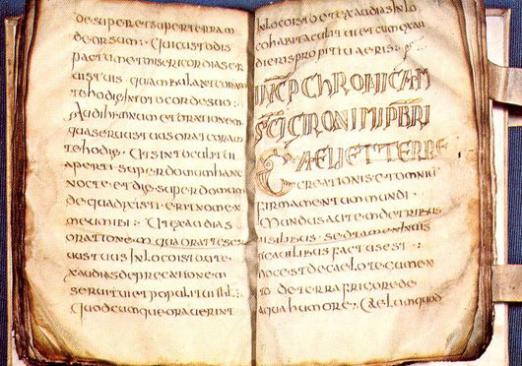 desuper et super terram
deorsum : Qui custodis
pactum et misericordia ser
uis tuis
te hodie in toto corde suo :
Audi hymnum et orationem
qua seruus tuus orat coram
te hodie : Ut sint oculi tui
aperti super domum hanc
nocte et die super domum
de qua dixisti : erit nomen
meum ibi : Ut exaudias
orationem qua orat te ser
uus tuus in loco isto ut
exaudias deprecationem
serui tui et populi tui isrl :
Quodcumque orauerint
in loco isto et exaudias in lo
co habitaculi tui et cum exau
dieris propitiaueris :
INCP CHRONICAM
SCI GIRONIMI PBRI
CAELI ET TERRE
creationis et omni
firmamentum mundi
Mundus autem de tribus
uisibilibus sed tamen inuis
factus est :
hoc est de caelo tegumen
to de terra frigore de
aqua humore : Caelum quod